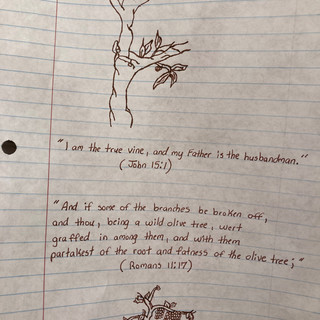 "I am the true vine, and my Father is the husbandman."
(John 15:1)
"And if some of the branches be broken off,
and thou, being a wild olive tree, wert
graffed in among them, and with them
partakest of the root and fatness of the olive tree;"
(Romans 11:17)